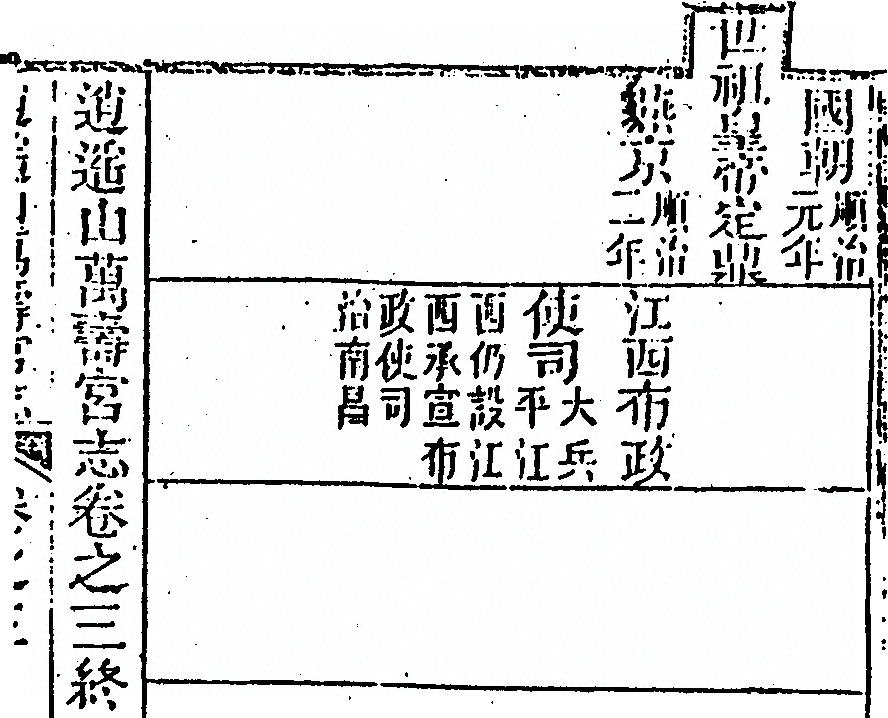 國朝順治元年
世祖皇帝定鼎
燕京順治二年
江西布政
使司大兵平江
西仍設江
西承宣布
政使司
治南昌
逍遙山萬壽宮志卷之三終